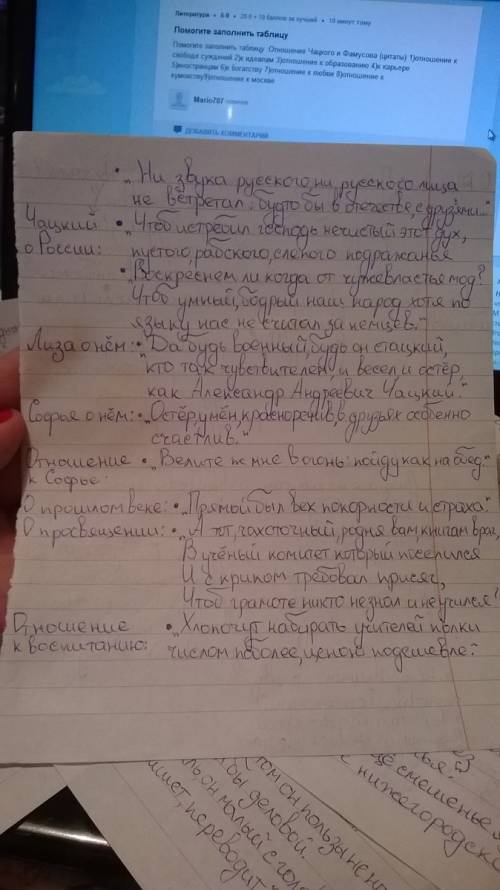 Литература • 5-9 • 20.0 + 10 баллов за лучший • 10 минут тому
Помогите заполнить таблицу
Помогите заполнить таблицу Отношение Чацкого и Фамусова (цитаты) 1)отношение к
свободе суждений 2)к идеалам 3)отношение к образованию 4)к карьере
5)иностранцам 6)к богатству 7)отношение к любви 8)отношение к
кумовству9)отношение к москве
Mario787 новичок
ДОБАВИТЬ КОММЕНТАРИЙ
• „Ни звука русского, ни русского лица
не встретал: будто бы в отечестве, с друзями..."
Чацкий • „Чтоб истребил господь нечистый этот дух,
о России: пустого, рабского, слепого подражанья
• „Воскреснем ли когда от чужевластья мод?
Чтоб умный, бодрый наш народ хотя по
языку нас не считал за немцев."
Лиза о нём: • „Да будь военный, будь он стацкий,
кто так чувствителен, и весел и остёр,
как Александр Андреевич Чацкий."
Софья о нём: • „Остёр, умён, красноречив, в друзьях особенно
счастлив."
Отношение • „Велите ж мне в огонь: пойду как на обед."
к Софье:
О прошлом веке: • „Прямый был век покорности и страха."
О просвящении: • „А тот, чахоточный, родня вам, книгам враг,
В учёный комитет который поселился
И с криком требовал присяг,
Чтоб грамоте никто не знал и не учился?
Отношение • „Хлопочут набирать учителей полки
к воспитанию: числом поболее, ценою подешевле."
ещё смешенье
с нижегородск
том он пользы не
бы деловой.
он малый с гол
ишет, переводит